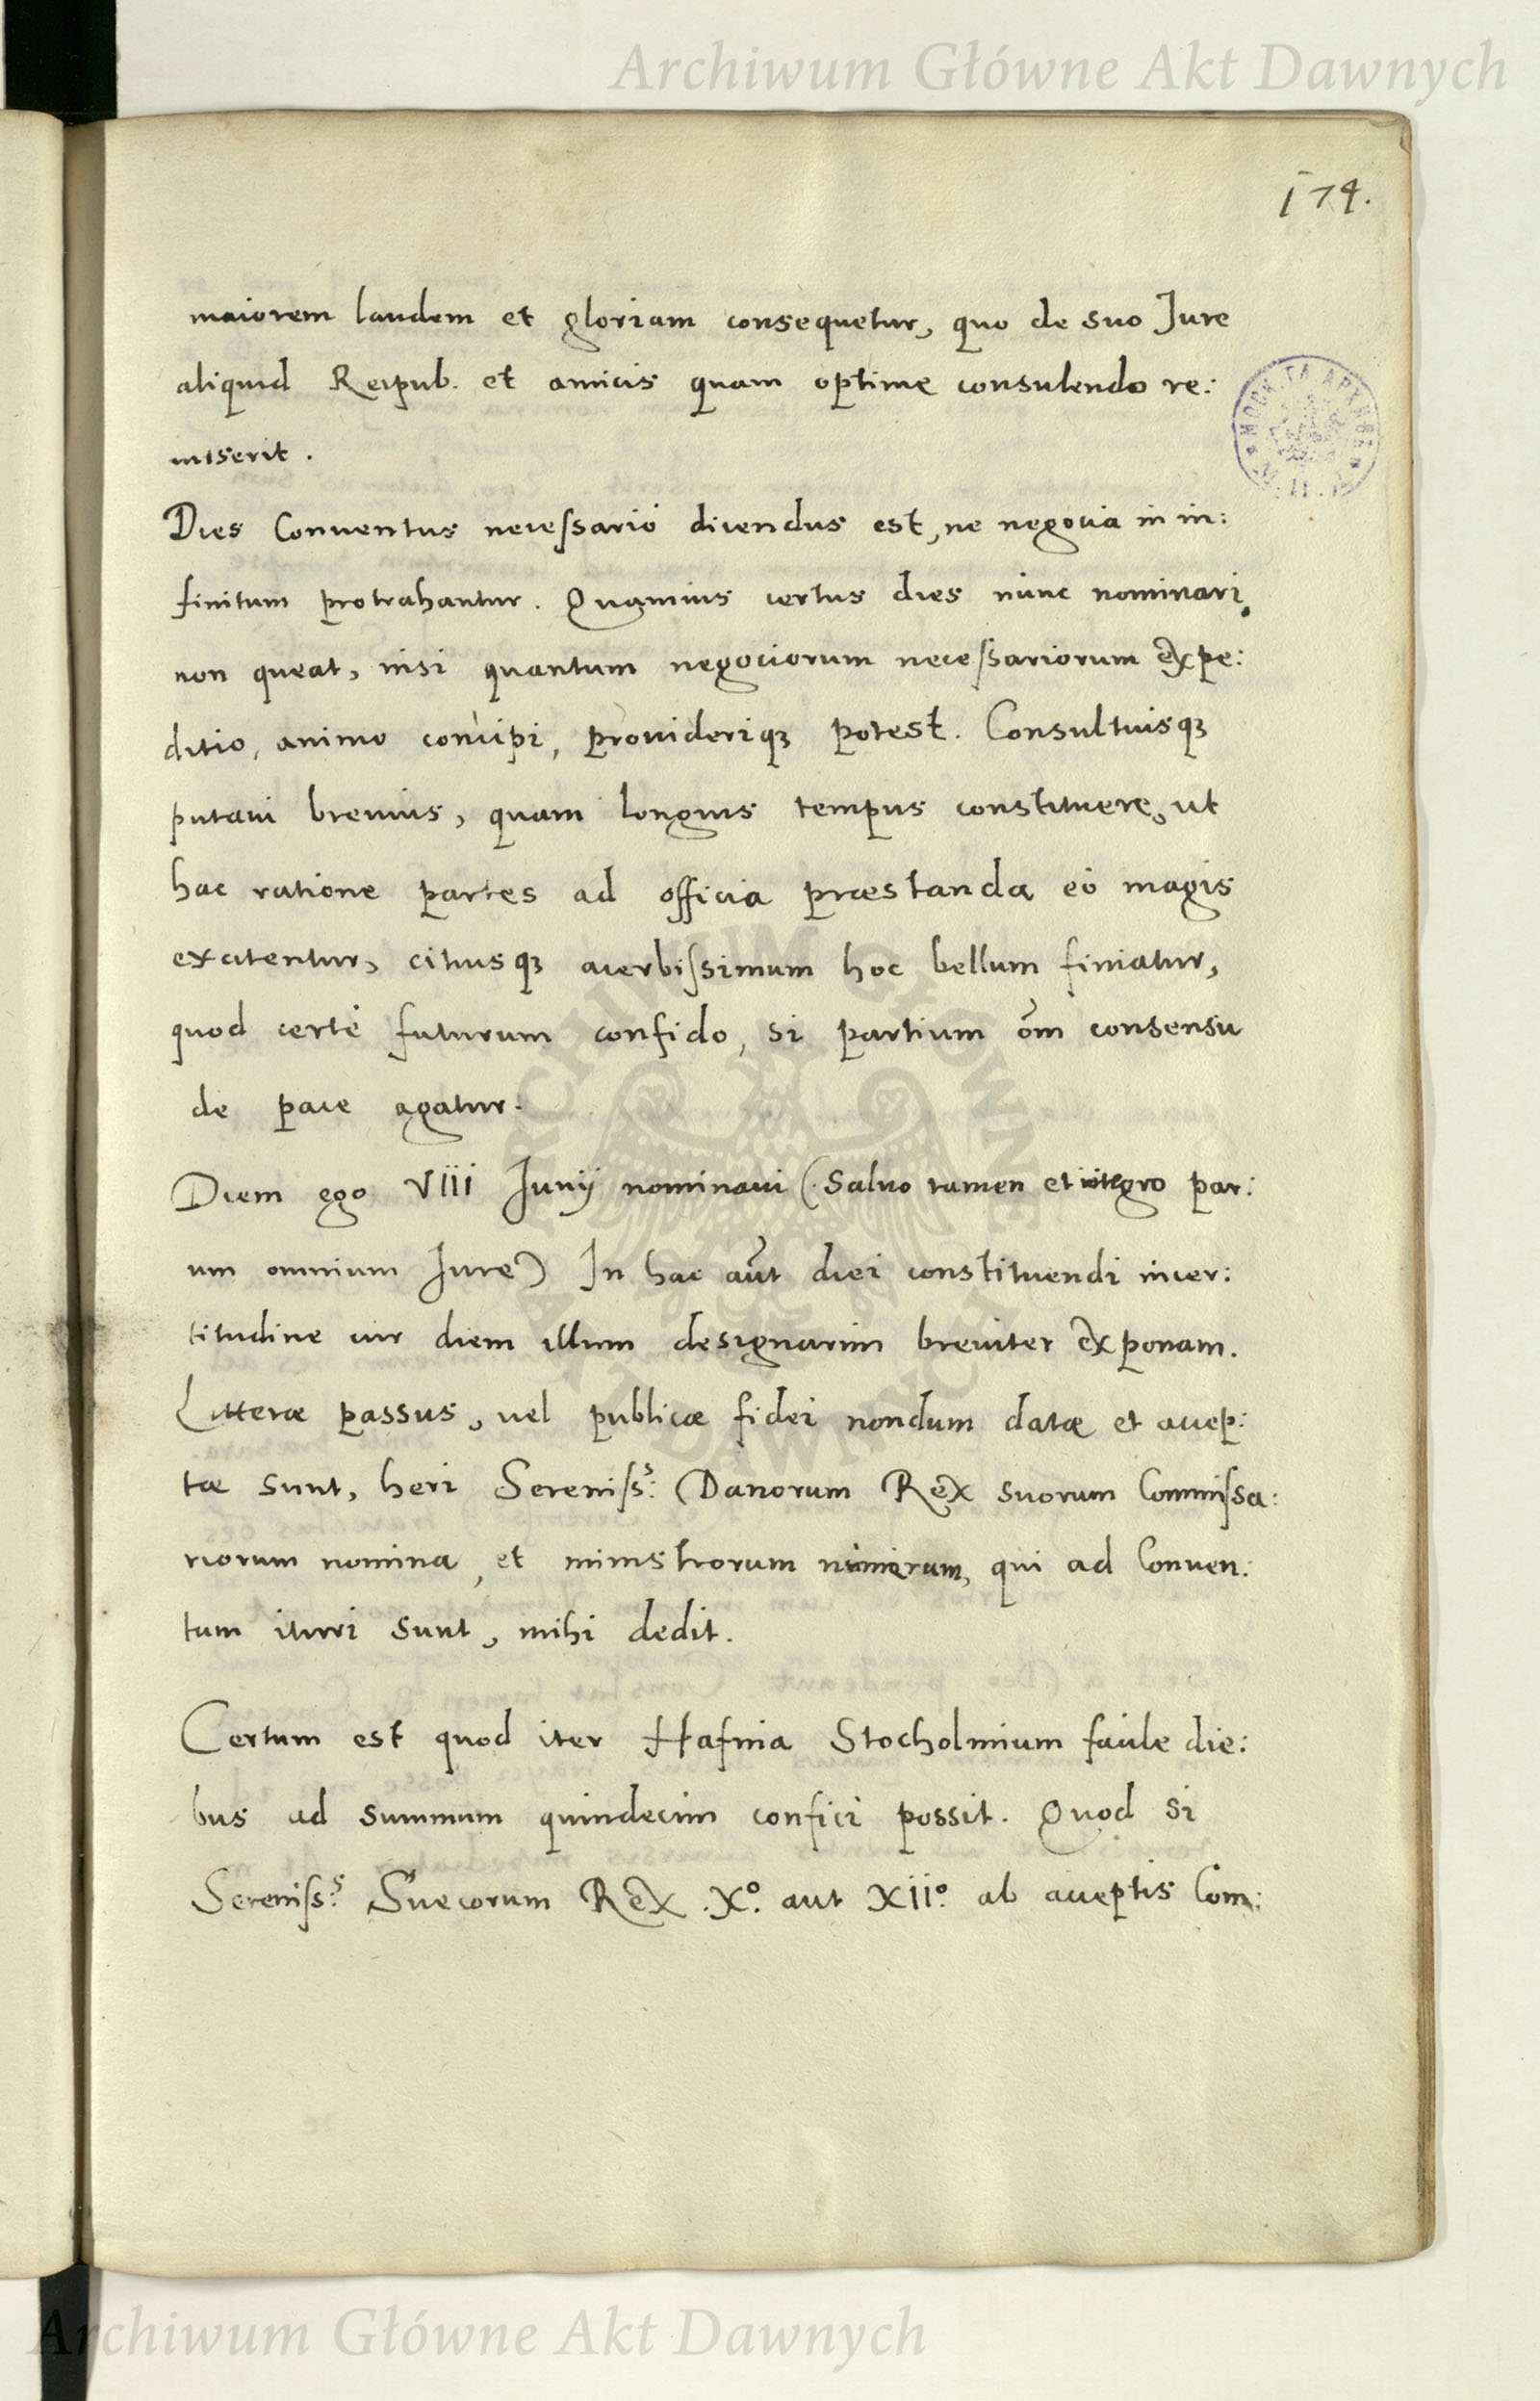 Archiwum Główne Akt Dawnych
174.
maiorem laudem et gloriam consequetur, quo de suo Jure
aliquid Reipub. et amicis quam optime consulendo re:
miserit.
Dies Conuentus necessariò dicendus est, ne negocia in in:
finitum protrahantur. Quamuis certus dies nunc nominari
non queat, nisi quantum negociorum necessariorum expe:
ditio, animo concipi, prouideriqꝫ potest. Consultiusqꝫ
putaui breuius, quam longius tempus constituere, ut
hac ratione partes ad officia præstanda eò magis
excitentur, citiusqꝫ acerbissimum hoc bellum finiatur,
quod certè futurum confido, si partium om̄ consensu
de pace agatur.
Diem ego VIII Junij nominaui (Saluo tamen et integro par:
ium omnium Jure) In hac aūt diei constituendi incer:
titudine cur diem illum designarim breuiter exponam.
Litteræ passus, uel publicæ fidei nondum datæ et accep:
tæ sunt, heri Sereniss.s Danorum Rex suorum Commissa:
riorum nomina, et ministrorum numerum, qui ad Conuen:
tum ituri sunt, mihi dedit.
Certum est quod iter Hafnia Stocholmium facile die:
bus ad summum quindecim confici possit. Quod si
Sereniss.s Suecorum Rex .X.º aut XII.º ab acceptis Com:
Archiwum Główne Akt Dawnych